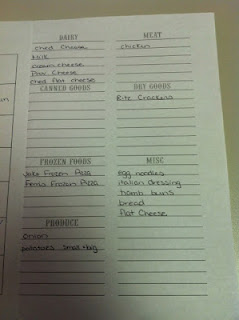 DAIRY
Ched Cheese
Milk
cream cheese
Ched flat cheese
CANNED GOODS
FROZEN FOODS
Frozen Pizza
Frozen Pizza
PRODUCE
Onion
potatoes small + big
MEAT
Chicken
DRY GOODS
Ritz Crackers
MISC
egg noodles
italian dressing
hamb buns
bread
flat Cheese